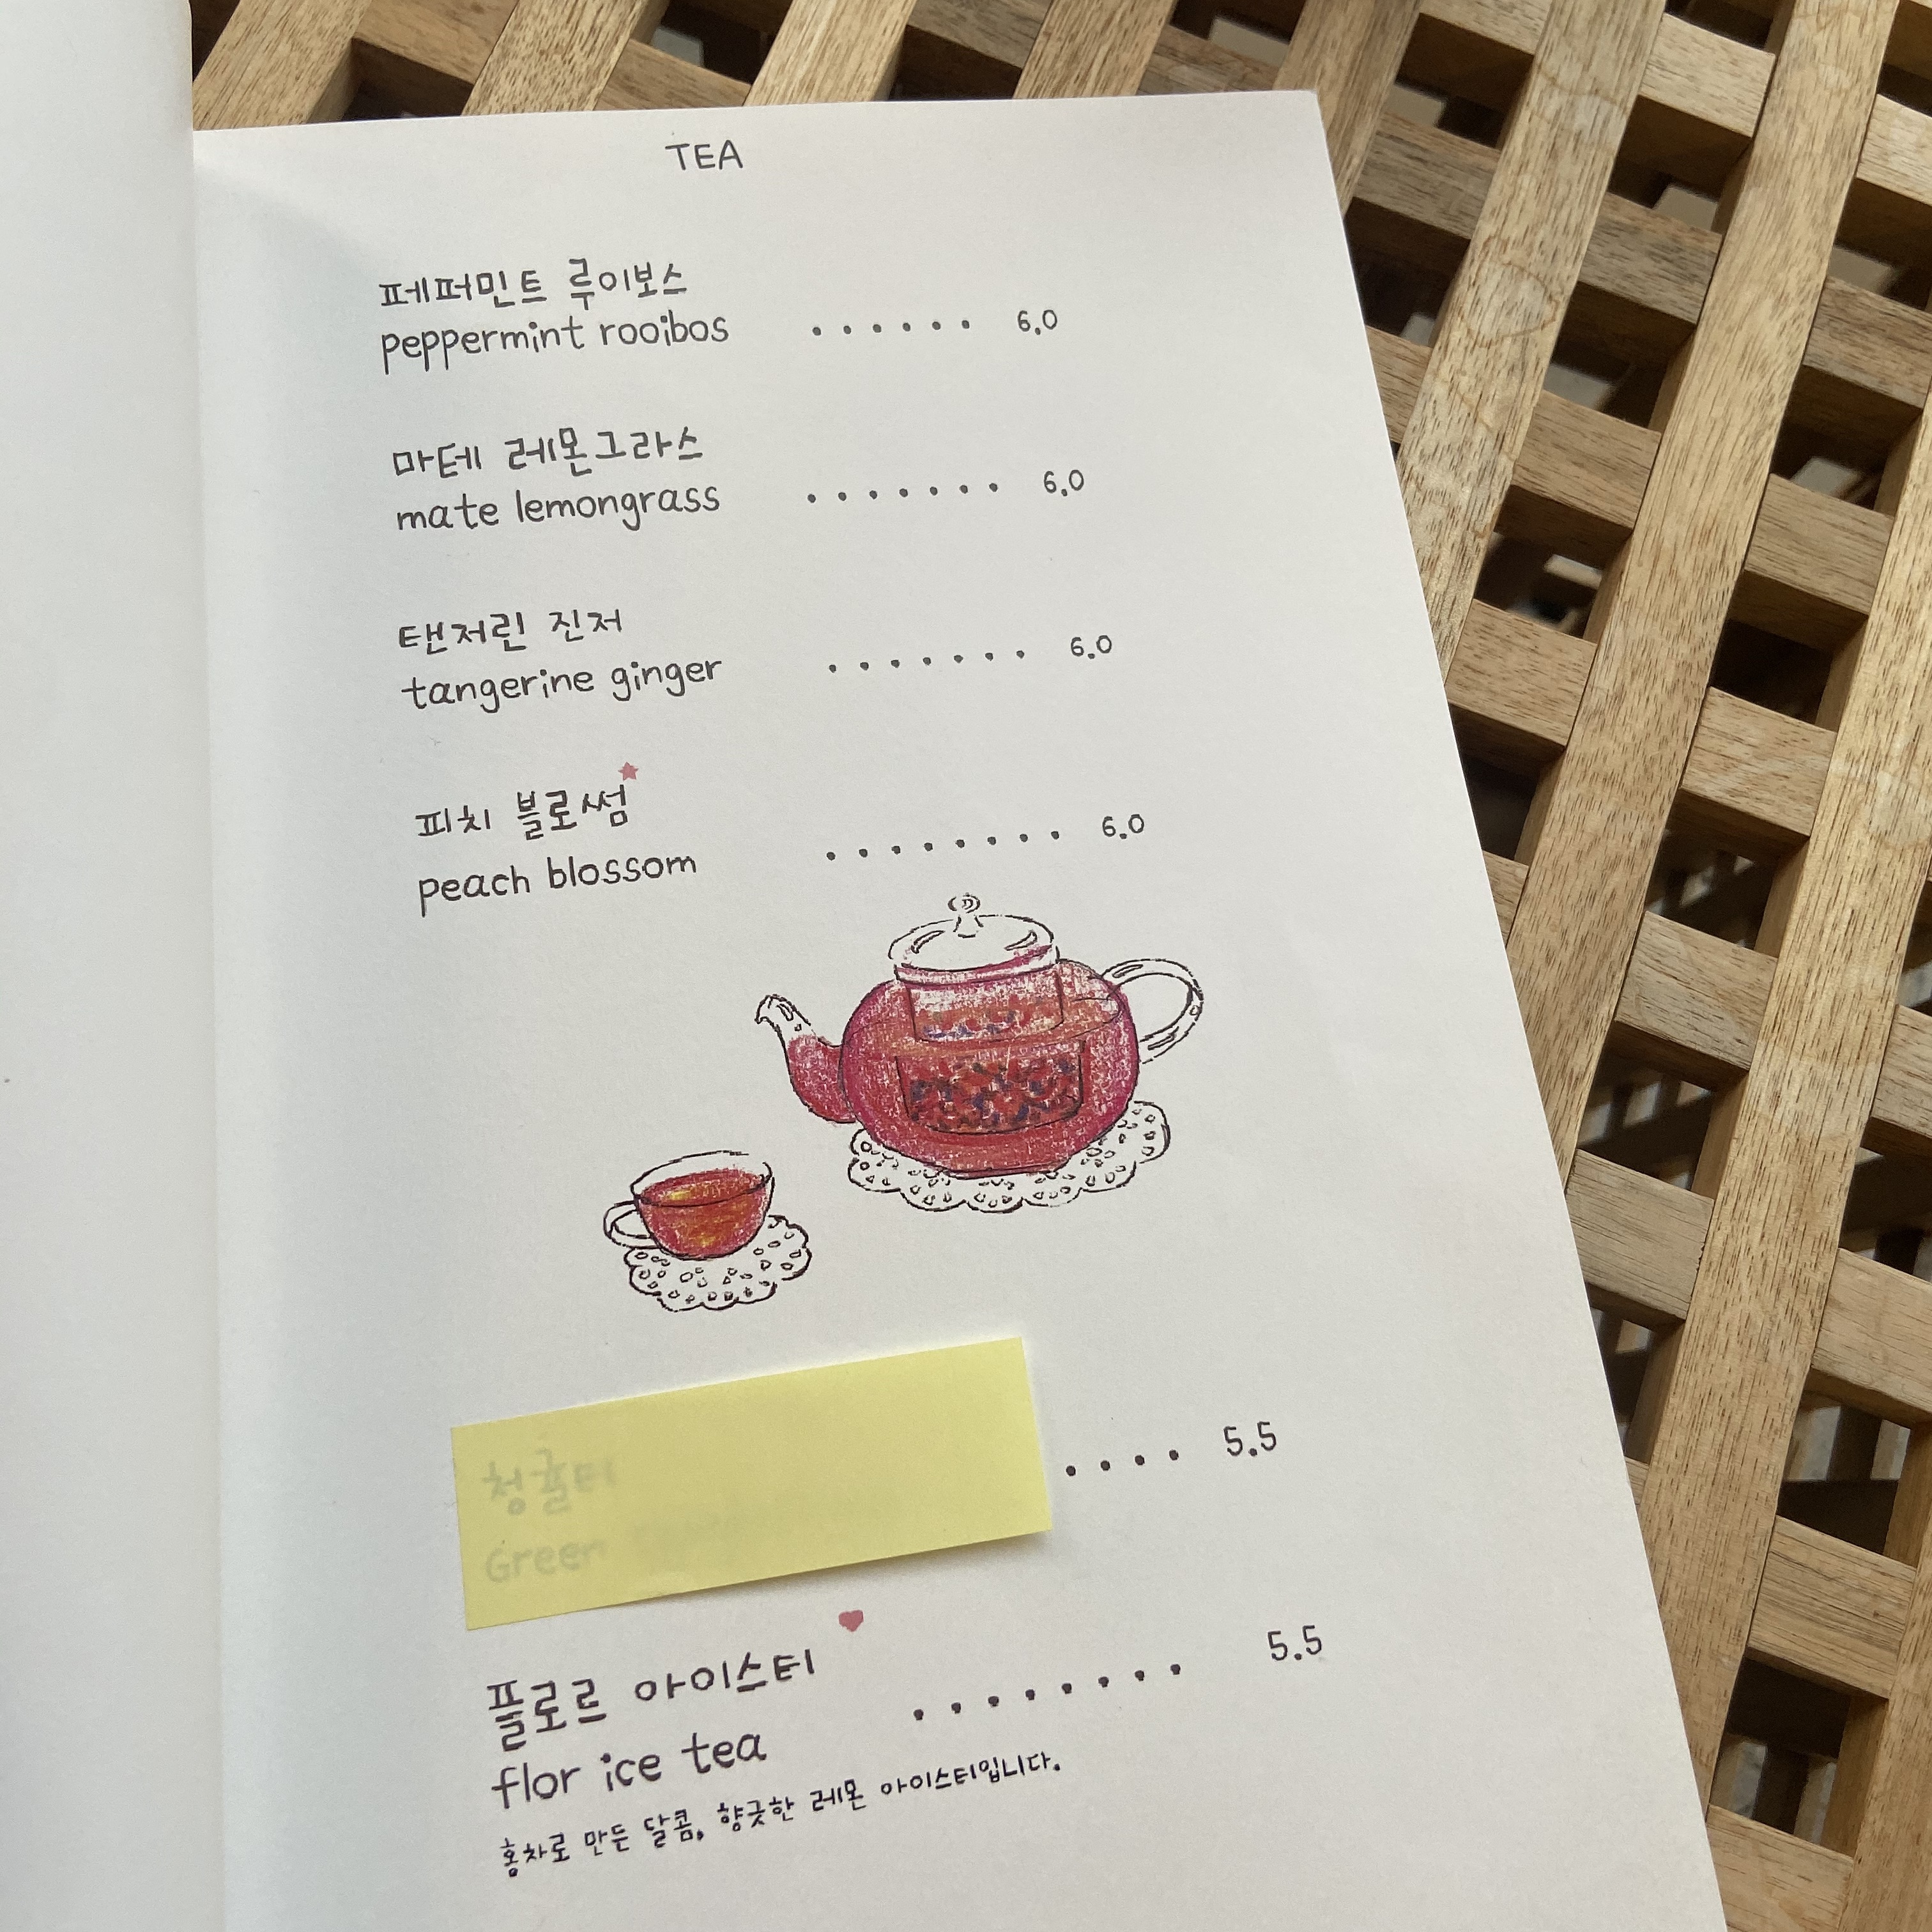 TEA
페퍼민트 루이보스
peppermint rooibos ...... 6.0
마테 레몬그라스
mate lemongrass ....... 6.0
탠저린 진저
tangerine ginger ....... 6.0
피치 블로썸
peach blossom ........ 6.0
청귤티
Green .... 5.5
플로르 아이스티
flor ice tea ........ 5.5
홍차로 만든 달콤, 향긋한 레몬 아이스티입니다.